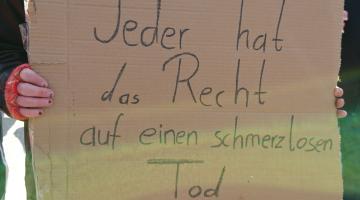 Jeder hat
das Recht
auf einen schmerzlosen
Tod